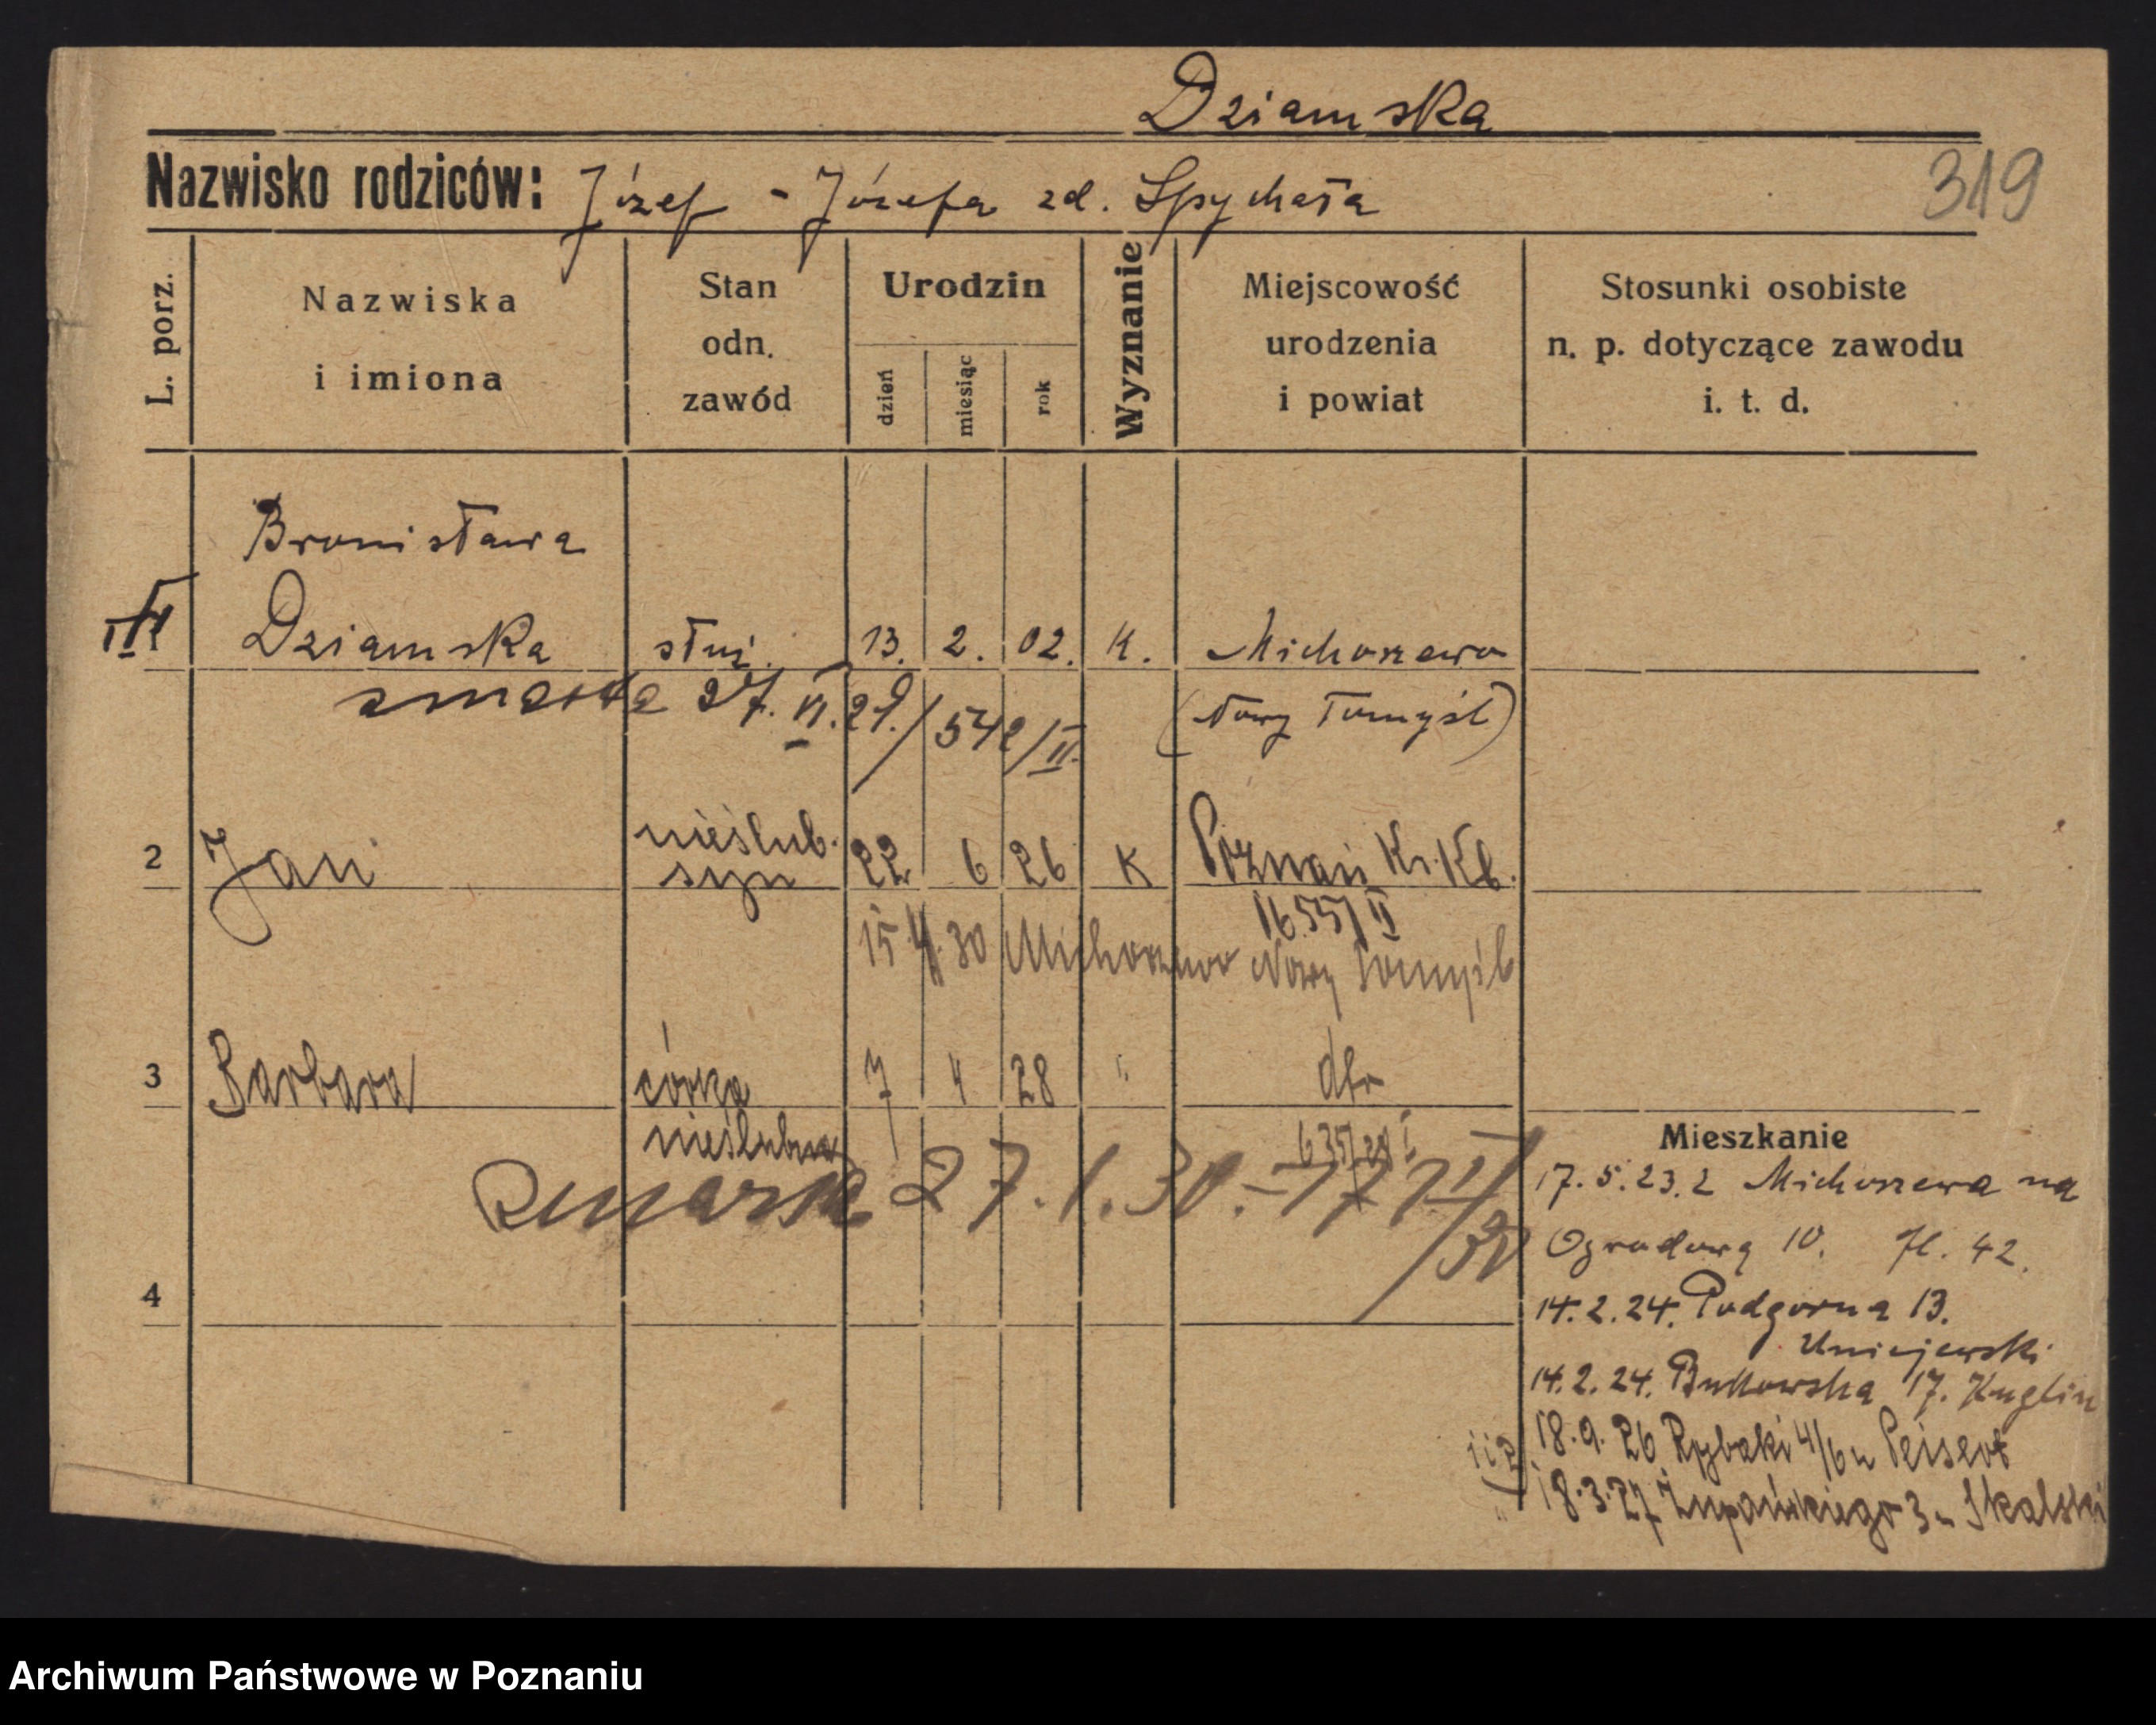 Dziamska
Nazwisko rodziców: Józef - Józefa zd. Spychała
319
L. porz.
Nazwiska i imiona
Stan odn. zawód
Urodzin
dzień
miesiąc
rok
Wyznanie
Miejscowość urodzenia i powiat
Stosunki osobiste n. p. dotyczące zawodu i. t. d.
Bronisława
Dziamska służ. 13. 2. 02. K. Michorzewo
zmarła 27. VI. 29./542/II. (Nowy Tomyśl)
2 Jan nieślub. syn 22 6 26 K Poznań Kr. Kb.
1655/II
15.4.30 Michorzewo Nowy Tomyśl
3 Barbara córka 7 4 28 " dto
nieślubna
zmarła 27.1.30.
4
Mieszkanie
17.5.23. z Michorzewa na
Ogrodową 10. 42.
14.2.24. Podgórna 13.
Uniejewski
14.2.24. Bukowska 17. Kuglin
18.9.26 Rybaki 4/6 u Peisert
18.3.27 Żupańskiego 3 u Skalski
Archiwum Państwowe w Poznaniu